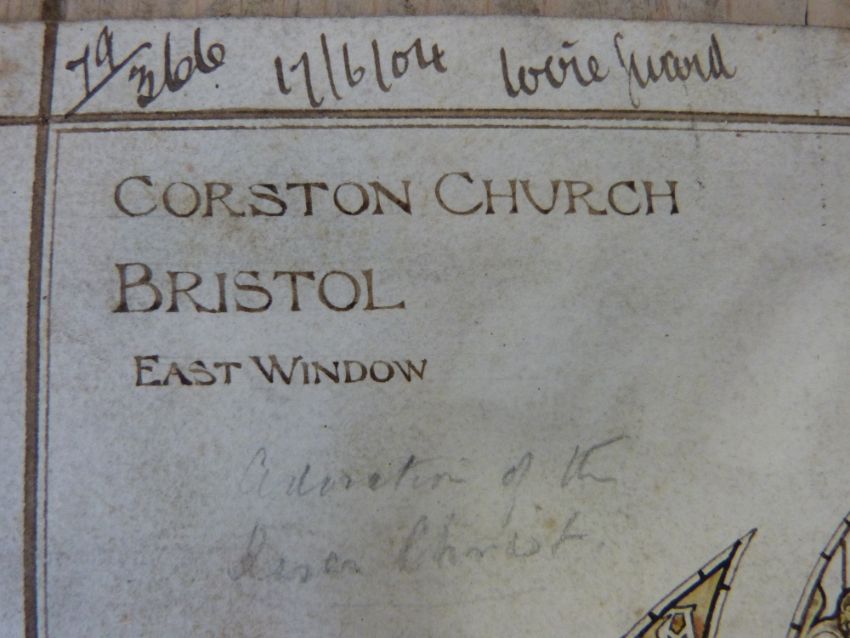 79/366 17/6/04 Wire Guard
CORSTON CHURCH
BRISTOL
EAST WINDOW
Adoration of the
Christ.